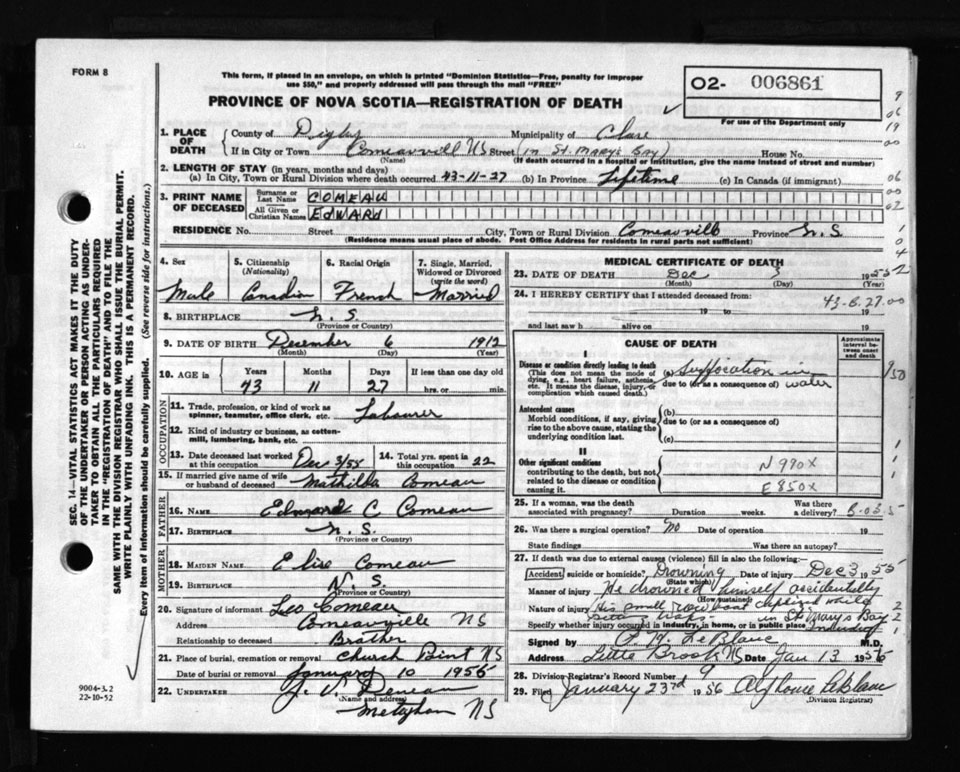 FORM 8
This form, if placed in an envelope, on which is printed "Dominion Statistics—Free, penalty for improper
use $50," and properly addressed will pass through the mail "FREE"
02- 006861
For use of the Department only
PROVINCE OF NOVA SCOTIA—REGISTRATION OF DEATH
1. PLACE OF DEATH
County of Digby Municipality of Clare
If in City or Town Comeauvill NS Street (in St. Marys Bay) House No.
(Name) (If death occurred in a Hospital or Institution, give the name instead of street and number)
2. LENGTH OF STAY (in years, months and days)
(a) In City, Town or Rural Division where death occurred 43-11-27 (b) In Province Lifetime (c) In Canada (if immigrant)
3. PRINT NAME OF DECEASED
Surname or Last Name COMEAU
All Given or Christian Names EDWARD
RESIDENCE No. Street City, Town or Rural Division Comeauville Province N.S.
(Residence means usual place of abode. Post Office Address for residents in rural parts not sufficient)
4. Sex Male
5. Citizenship (Nationality) Canadian
6. Racial Origin French
7. Single, Married, Widowed or Divorced (write the word) Married
8. BIRTHPLACE N.S.
(Province or Country)
9. DATE OF BIRTH December 6 1912
(Month) (Day) (Year)
10. AGE in Years 43 Months 11 Days 27 If less than one day old hrs. or min.
OCCUPATION
11. Trade, profession, or kind of work as spinner, teamster, office clerk, etc. Labourer
12. Kind of industry or business, as cotton-mill, lumbering, bank, etc.
13. Date deceased last worked at this occupation Dec 3/55
14. Total yrs. spent in this occupation 22
15. If married give name of wife or husband of deceased Mathilda Comeau
FATHER
16. NAME Edward C Comeau
17. BIRTHPLACE N.S.
(Province or Country)
MOTHER
18. MAIDEN NAME Elise Comeau
19. BIRTHPLACE N.S.
(Province or Country)
20. Signature of informant Leo Comeau
Address Comeauville NS
Relationship to deceased Brother
21. Place of burial, cremation or removal Church Point NS
Date of burial or removal January 10 1956
22. UNDERTAKER
(Name and address)
Meteghan NS
9004-3.2
22-10-52
MEDICAL CERTIFICATE OF DEATH
23. DATE OF DEATH Dec 3 1955
(Month) (Day) (Year)
24. I HEREBY CERTIFY that I attended deceased from:
43-6.27.00
19 to 19
and last saw h alive on 19
CAUSE OF DEATH
Approximate interval between onset and death
I
Disease or condition directly leading to death
(This does not mean the mode of dying, e.g., heart failure, asthenia, etc. It means the disease, injury, or complication which caused death.)
(a) Suffocation in
due to (or as a consequence of) water
Antecedent causes
Morbid conditions, if any, giving rise to the above cause, stating the underlying condition last.
(b)
due to (or as a consequence of)
(c)
II
Other significant conditions
contributing to the death, but not related to the disease or condition causing it.
N990X
E850X
25. If a woman, was the death associated with pregnancy? Duration weeks. Was there a delivery?
26. Was there a surgical operation? No Date of operation 19
State findings Was there an autopsy?
27. If death was due to external causes (violence) fill in also the following:—
Accident, suicide or homicide? Drowning Date of injury Dec 3 1955
(State which)
Manner of injury He drowned himself accidentally
(How sustained)
Nature of injury His small row boat while
in St. Mary's Bay
Specify whether injury occurred in industry, in home, or in public place Industry
Signed by LeBlanc M.D.
Address Little Brook NS Date Jan 13 1956
28. Division Registrar's Record Number 9
29. Filed January 23rd 1956 Alphonse LeBlanc
(Division Registrar)
SEC. 14—VITAL STATISTICS ACT MAKES THE DUTY
OF THE UNDERTAKER OR PERSON ACTING AS UNDER-
TAKER TO OBTAIN ALL THE PARTICULARS REQUIRED
IN THE "REGISTRATION OF DEATH" AND TO FILE THE
SAME WITH THE DIVISION REGISTRAR WHO SHALL ISSUE THE BURIAL PERMIT.
WRITE PLAINLY WITH UNFADING INK. THIS IS A PERMANENT RECORD.
Every item of information should be carefully supplied. (See reverse side for instructions.)